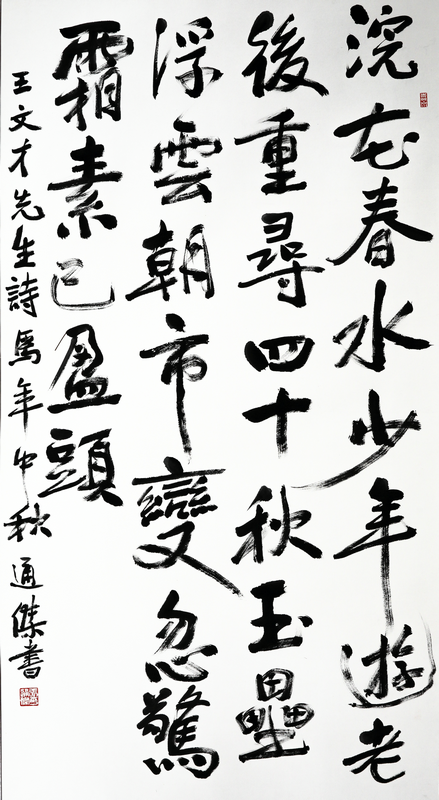 浣花春水少年遊老
後重尋四十秋玉壘
浮雲朝市變忽驚
霜素已盈頭
王文才先生詩馬年中秋通傑書